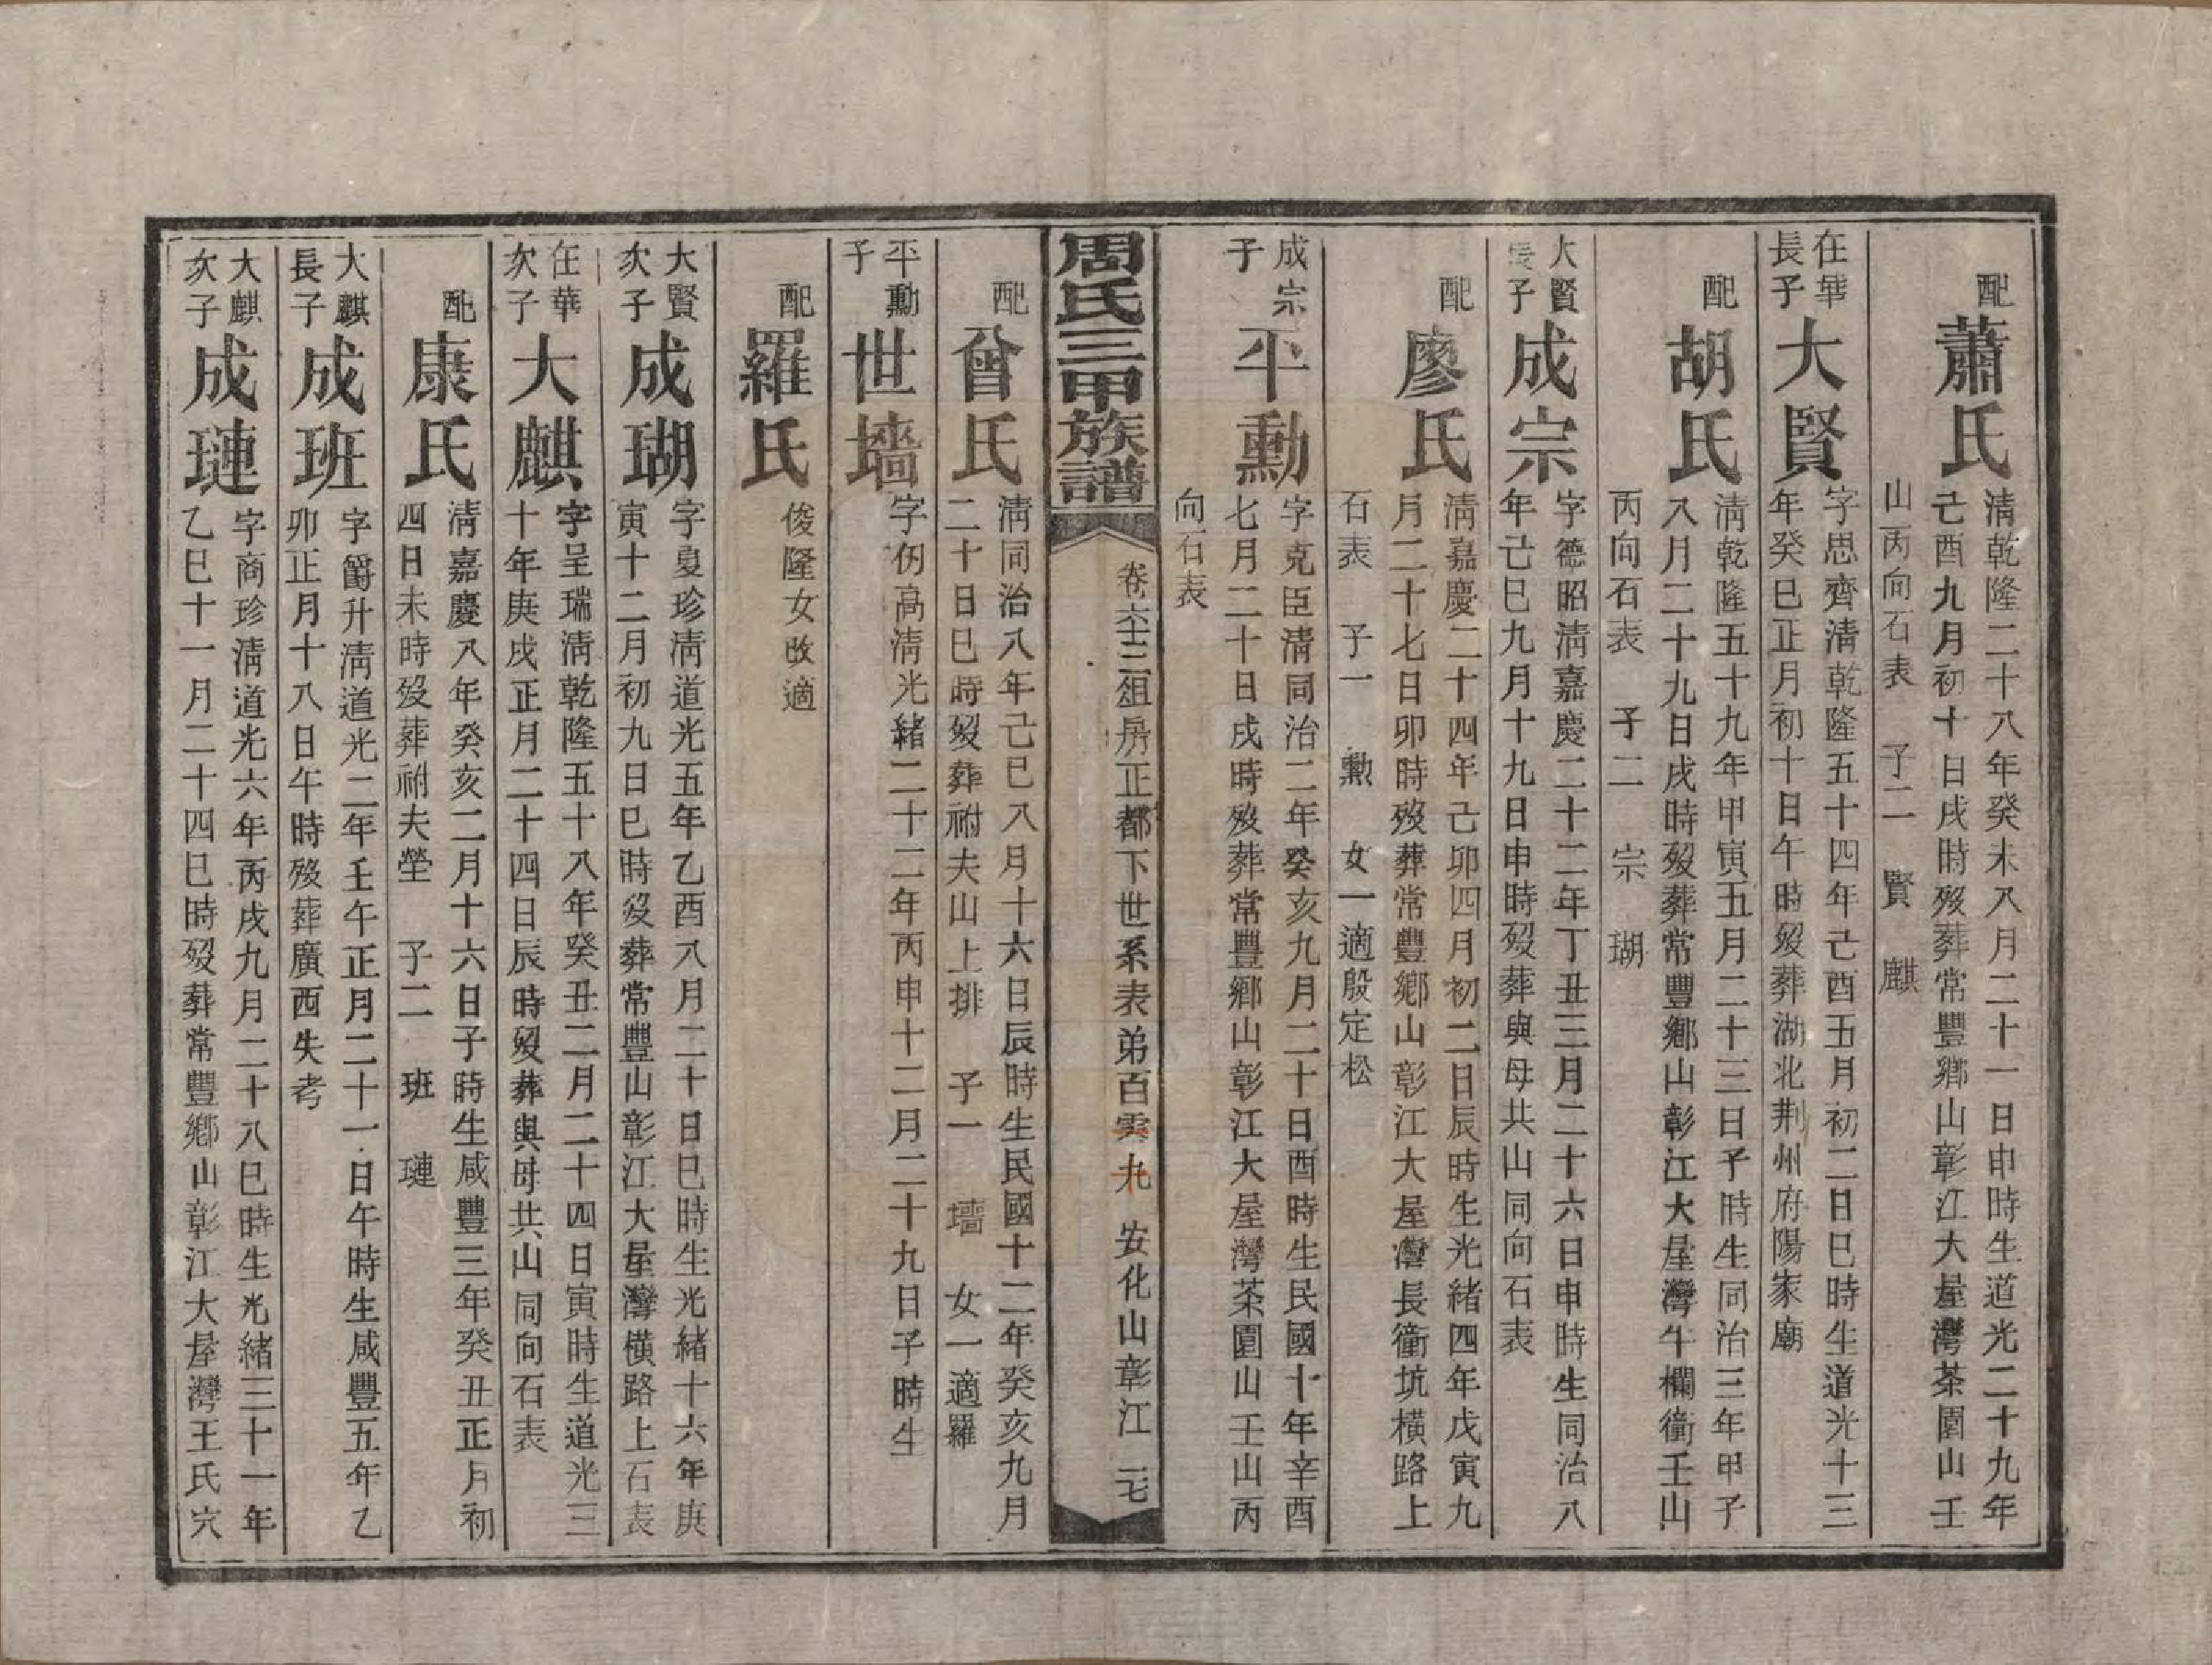 配
蕭氏
淸乾隆二十八年癸未八月二十一日申時生道光二十九年
己酉九月初十日戌時歿葬常豐鄉山彰江大屋灣茶園山壬
山丙向石表 子二 賢 麒
在華
長子
大賢
字思齊淸乾隆五十四年己酉五月初二日巳時生道光十三
年癸巳正月初十日午時歿葬湖北荆州府陽家廟
配
胡氏
淸乾隆五十九年甲寅五月二十三日子時生同治三年甲子
八月二十九日戌時歿葬常豐鄉山彰江大屋灣牛欄衝壬山
丙向石表 子二 宗 瑚
大賢
長子
成宗
字德昭淸嘉慶二十二年丁丑三月二十六日申時生同治八
年己巳九月十九日申時歿葬與母共山同向石表
配
廖氏
淸嘉慶二十四年己卯四月初二日辰時生光緒四年戊寅九
月二十七日卯時歿葬常豐鄉山彰江大屋灣長衝坑横路上
石表 子一 勳 女一適殷定松
成宗
子
平勳
字克臣淸同治二年癸亥九月二十日酉時生民國十年辛酉
七月二十日戌時歿葬常豐鄉山彰江大屋灣茶園山壬山丙
向石表
周氏三甲族譜
卷六十三 俎房正都下世系表弟百零九 安化山彰江 二七
配
曾氏
淸同治八年己巳八月十六日辰時生民國十二年癸亥九月
二十日巳時歿葬祔夫山上排 子一 墻 女一適羅
平勳
子
世墻
字仞高淸光緒二十二年丙申十二月二十九日子時生
配
羅氏
俊隆女改適
大賢
次子
成瑚
字夏珍淸道光五年乙酉八月二十日巳時生光緒十六年庚
寅十二月初九日巳時歿葬常豐山彰江大屋灣横路上石表
在華
次子
大麒
字呈瑞淸乾隆五十八年癸丑二月二十四日寅時生道光三
十年庚戌正月二十四日辰時歿葬與母共山同向石表
配
康氏
淸嘉慶八年癸亥二月十六日子時生咸豐三年癸丑正月初
四日未時歿葬祔夫塋 子二 班 璉
大麒
長子
成班
字爵升淸道光二年壬午正月二十一日午時生咸豐五年乙
卯正月十八日午時歿葬廣西失考
大麒
次子
成璉
字商珍淸道光六年丙戌九月二十八巳時生光緒三十一年
乙巳十一月二十四巳時歿葬常豐鄉山彰江大屋灣王氏穴